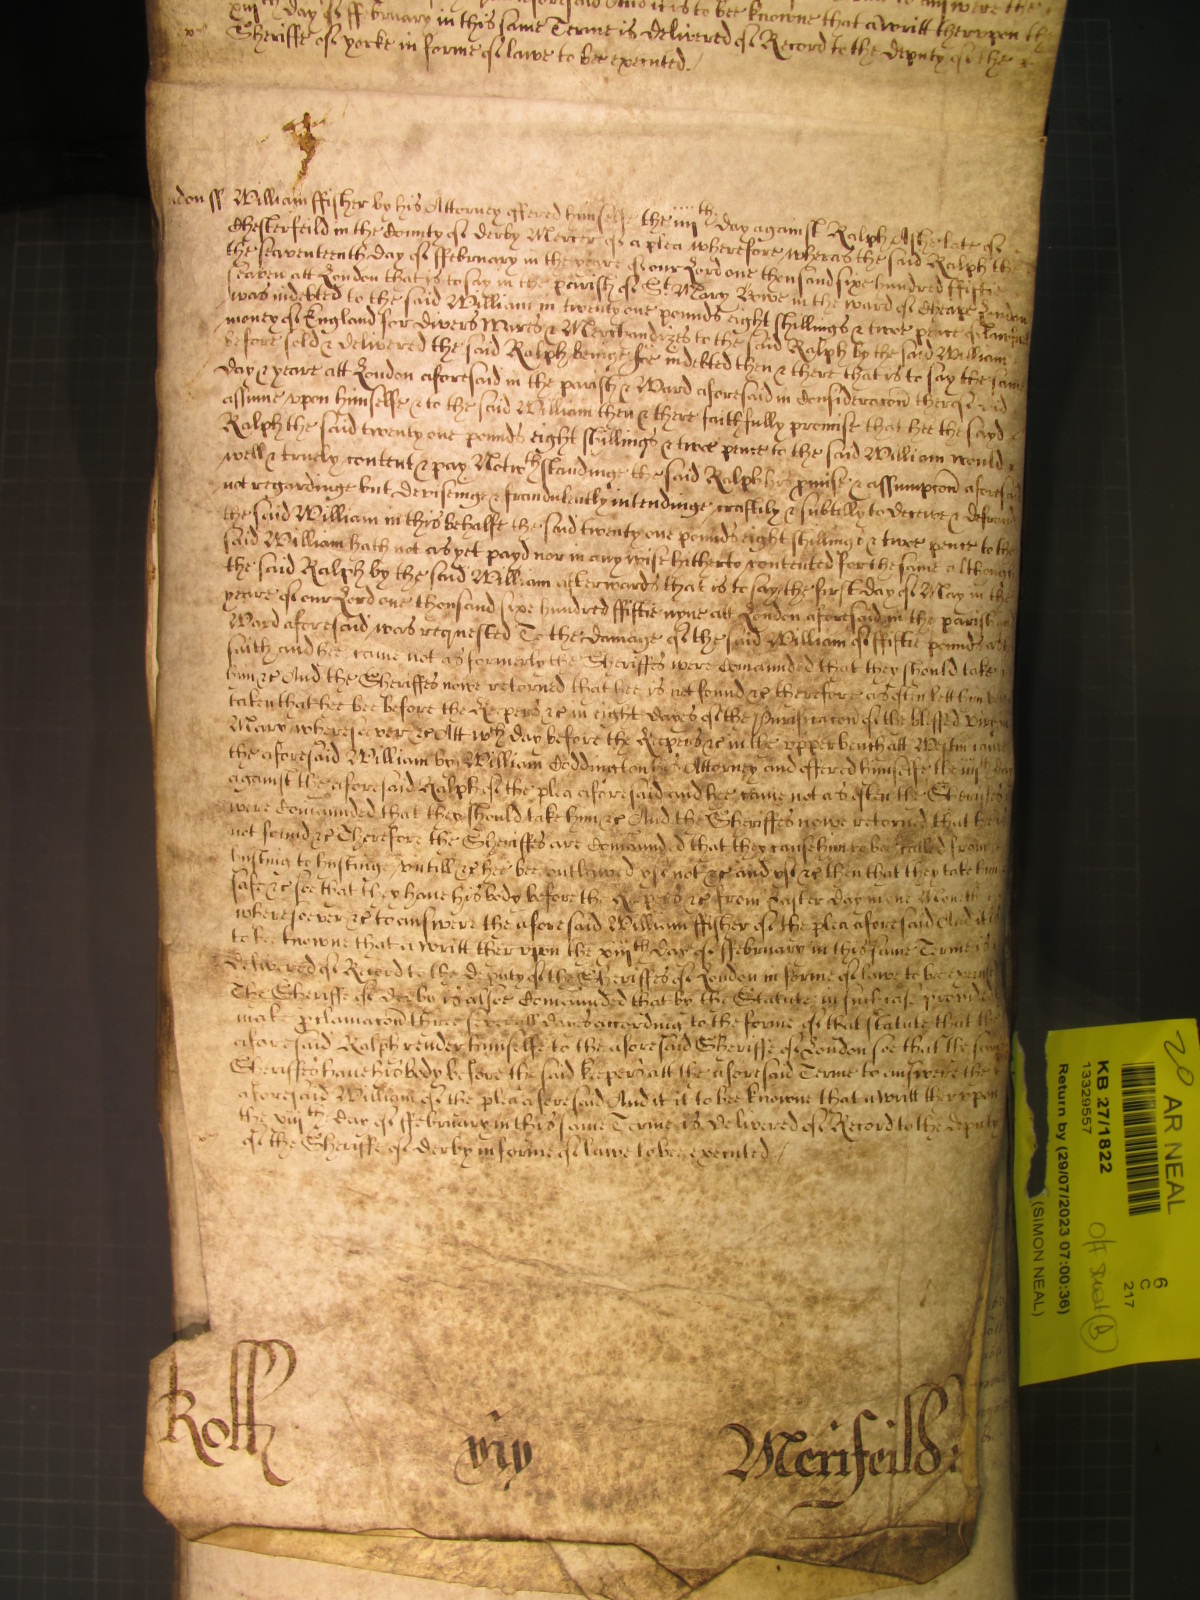 xiijth day of ffebruary in this same Terme is delivered of Record to the deputy of the
Sheriffe of yorke in forme of lawe to bee executed
London ss William ffisher by his Attorney offered himselfe the iiijth day against Ralph Ashe late of
Chesterfeild in the County of derby Mercer of a plea wherefore wheras the said Ralph the
the seaventeenth day of ffebruary in the yeare of our Lord one thousand sixe hundred ffiftie
seaven att London that is to say in the parish of St Mary Bowe in the ward of Cheape London
was indebted to the said William in twenty one pounds eight shillings & twoe pence of lawfull
money of England for divers wares & Merchandizes to the said Ralph by the said William
before sold & delivered the said Ralph beinge soe indebted then & there that is to say the same
day & yeare att London aforesaid in the parish & Ward aforesaid in Consideracon therof did
assume vpon himselfe & to the said William then & there faithfully promise that hee the sayd
Ralph the said twenty one pounds eight shillings & twoe pence to the said William would
well & truely content & pay Notwthstandinge the said Ralph his pmise & assumpcon aforesaid
not regardinge but deviseinge & fraudulently intendinge craftily & subtilly to deceive & defraud
the said William in this behalfe the said twenty one pounds eight shillings & twoe pence to the
said William hath not as yet payd nor in any wise hitherto contented for the same although
the said Ralph by the said William afterwards that is to say the first day of May in the
yeare of our Lord one thousand sixe hundred ffiftie nyne att London aforesaid in the parish and
Ward aforesaid was requested To the damage of the said William of ffiftie pounds as hee
saith and hee came not as formerly the Sheriffes were Comaunded that they should take
him &c And the Sheriffes nowe retorned that hee is not found &c therefore as often lett him bee
taken that hee bee before the Keepers &c in eight dayes of the Purificacon of the blessed virgin
Mary wheresoever &c Att wch day before the Keepers &c in the vpper bench att Westm came
the aforesaid William by William Coddington his Attorney and offered himselfe the iiijth day
against the aforesaid Ralph of the plea aforesaid and hee came not as often the Sheriffes
were Comaunded that they should take him &c And the Sheriffes nowe retorned that hee is
not found &c Therefore the Sheriffes are Comaunded that they cause him to bee called from
husting to husting vntill &c hee bee outlawed yf not &c and yf &c then that they take him
safe &c soe that they have his body before the Keepers &c from Easter day in one Moneth
wheresoever &c to answere the aforesaid William ffisher of the plea aforesaid And it is
to bee knowne that a writt thervpon the xiijth day of ffebruary in this same Terme is
delivered of Record to the deputy of the Sheriffes of London in forme of lawe to bee executed
The Sheriffe of derby is alsoe Comaunded that by the Statute in such case provided
make pclamacon three severall dayes according to the forme of that statute that the
aforesaid Ralph render himselfe to the aforesaid Sheriffe of London soe that the same
Sheriffes have his body before the said keepers att the aforesaid Terme to answere the
aforesaid William of the plea aforesaid And it it to bee knowne that a writt thervpon
the xiijth day of ffebruary in this same Terme is delivered of Record to the deputy
of the Sheriffe of derby in forme of lawe to bee executed
Roll xix Merifeild
20 AR NEAL
6
C
217
KB 27/1822
13329557
Return by (29/07/2023 07:00:36)
(SIMON NEAL)